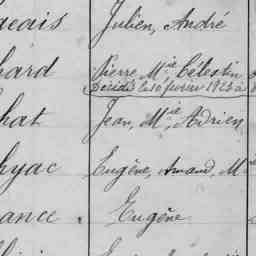 acais Julien, André
hard Pierre, Mie Célestin
Décédé le 10 février 1923 à
hat Jean, Mie, Adrien
hyac Eugène, Amand, Mie
ance. Eugène